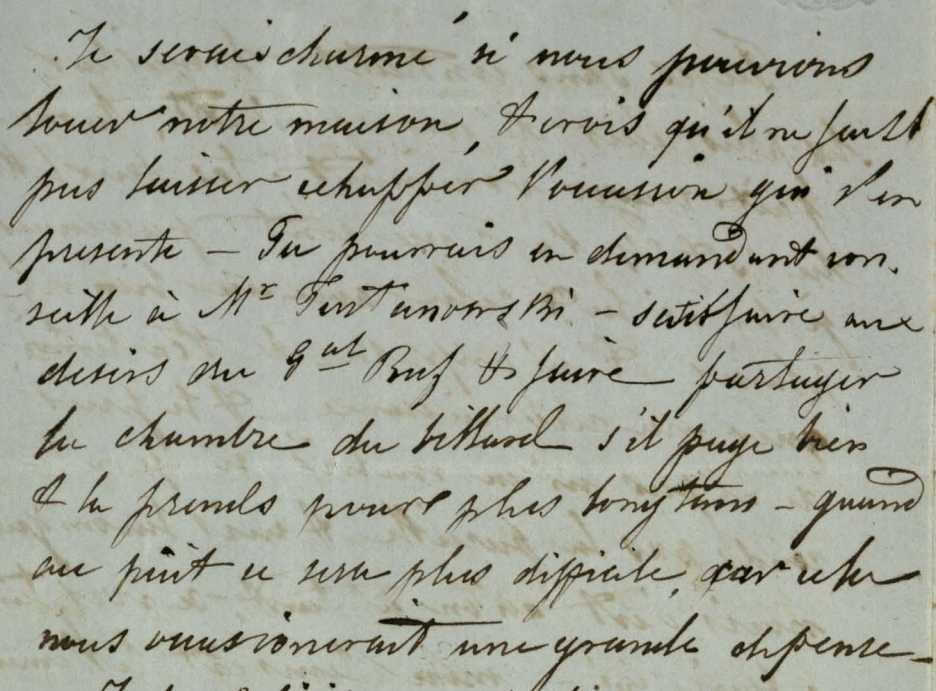 Je serais charmé si nous pouvions
louer notre maison, & crois qu'il ne faut
pas laisser echapper l'ocassion qui s'en
presente — Tu pourrais en demandant con-
seille à Mr — satisfaire aux
desirs du Gal & faire partager
la chambre du billard s'il paye bien
& la prends pour plus longtems — quand
au puit ce sera plus difficile, car cela
nous ocasionerait une grande depense —